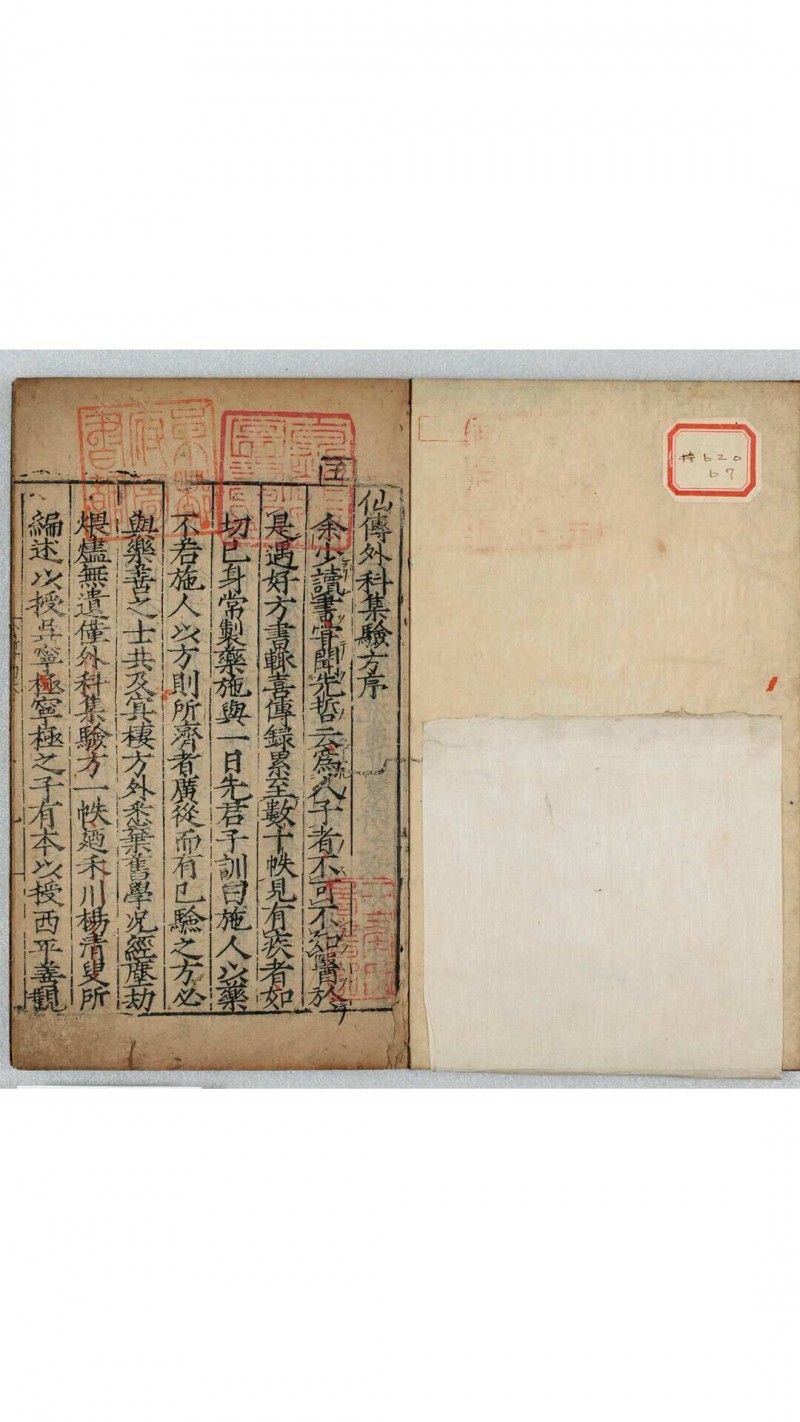 仙傳外科集驗方序
余少讀書甞聞先哲云爲人子者不可不知醫於
是遇好方書輙喜傳録累至數十帙見有疾者如
切已身常製藥施與一日先君子訓曰施人以藥
不若施人以方則所濟者廣從而有已驗之方必
與藥善之士共及寘棲方外悉棄舊學况經塵刼
煨燼無遺僅外科集驗方一帙廼禾川楊清叟所
編述以授吳寧極寧極之子有本以授西平善觀
特 b20
b7